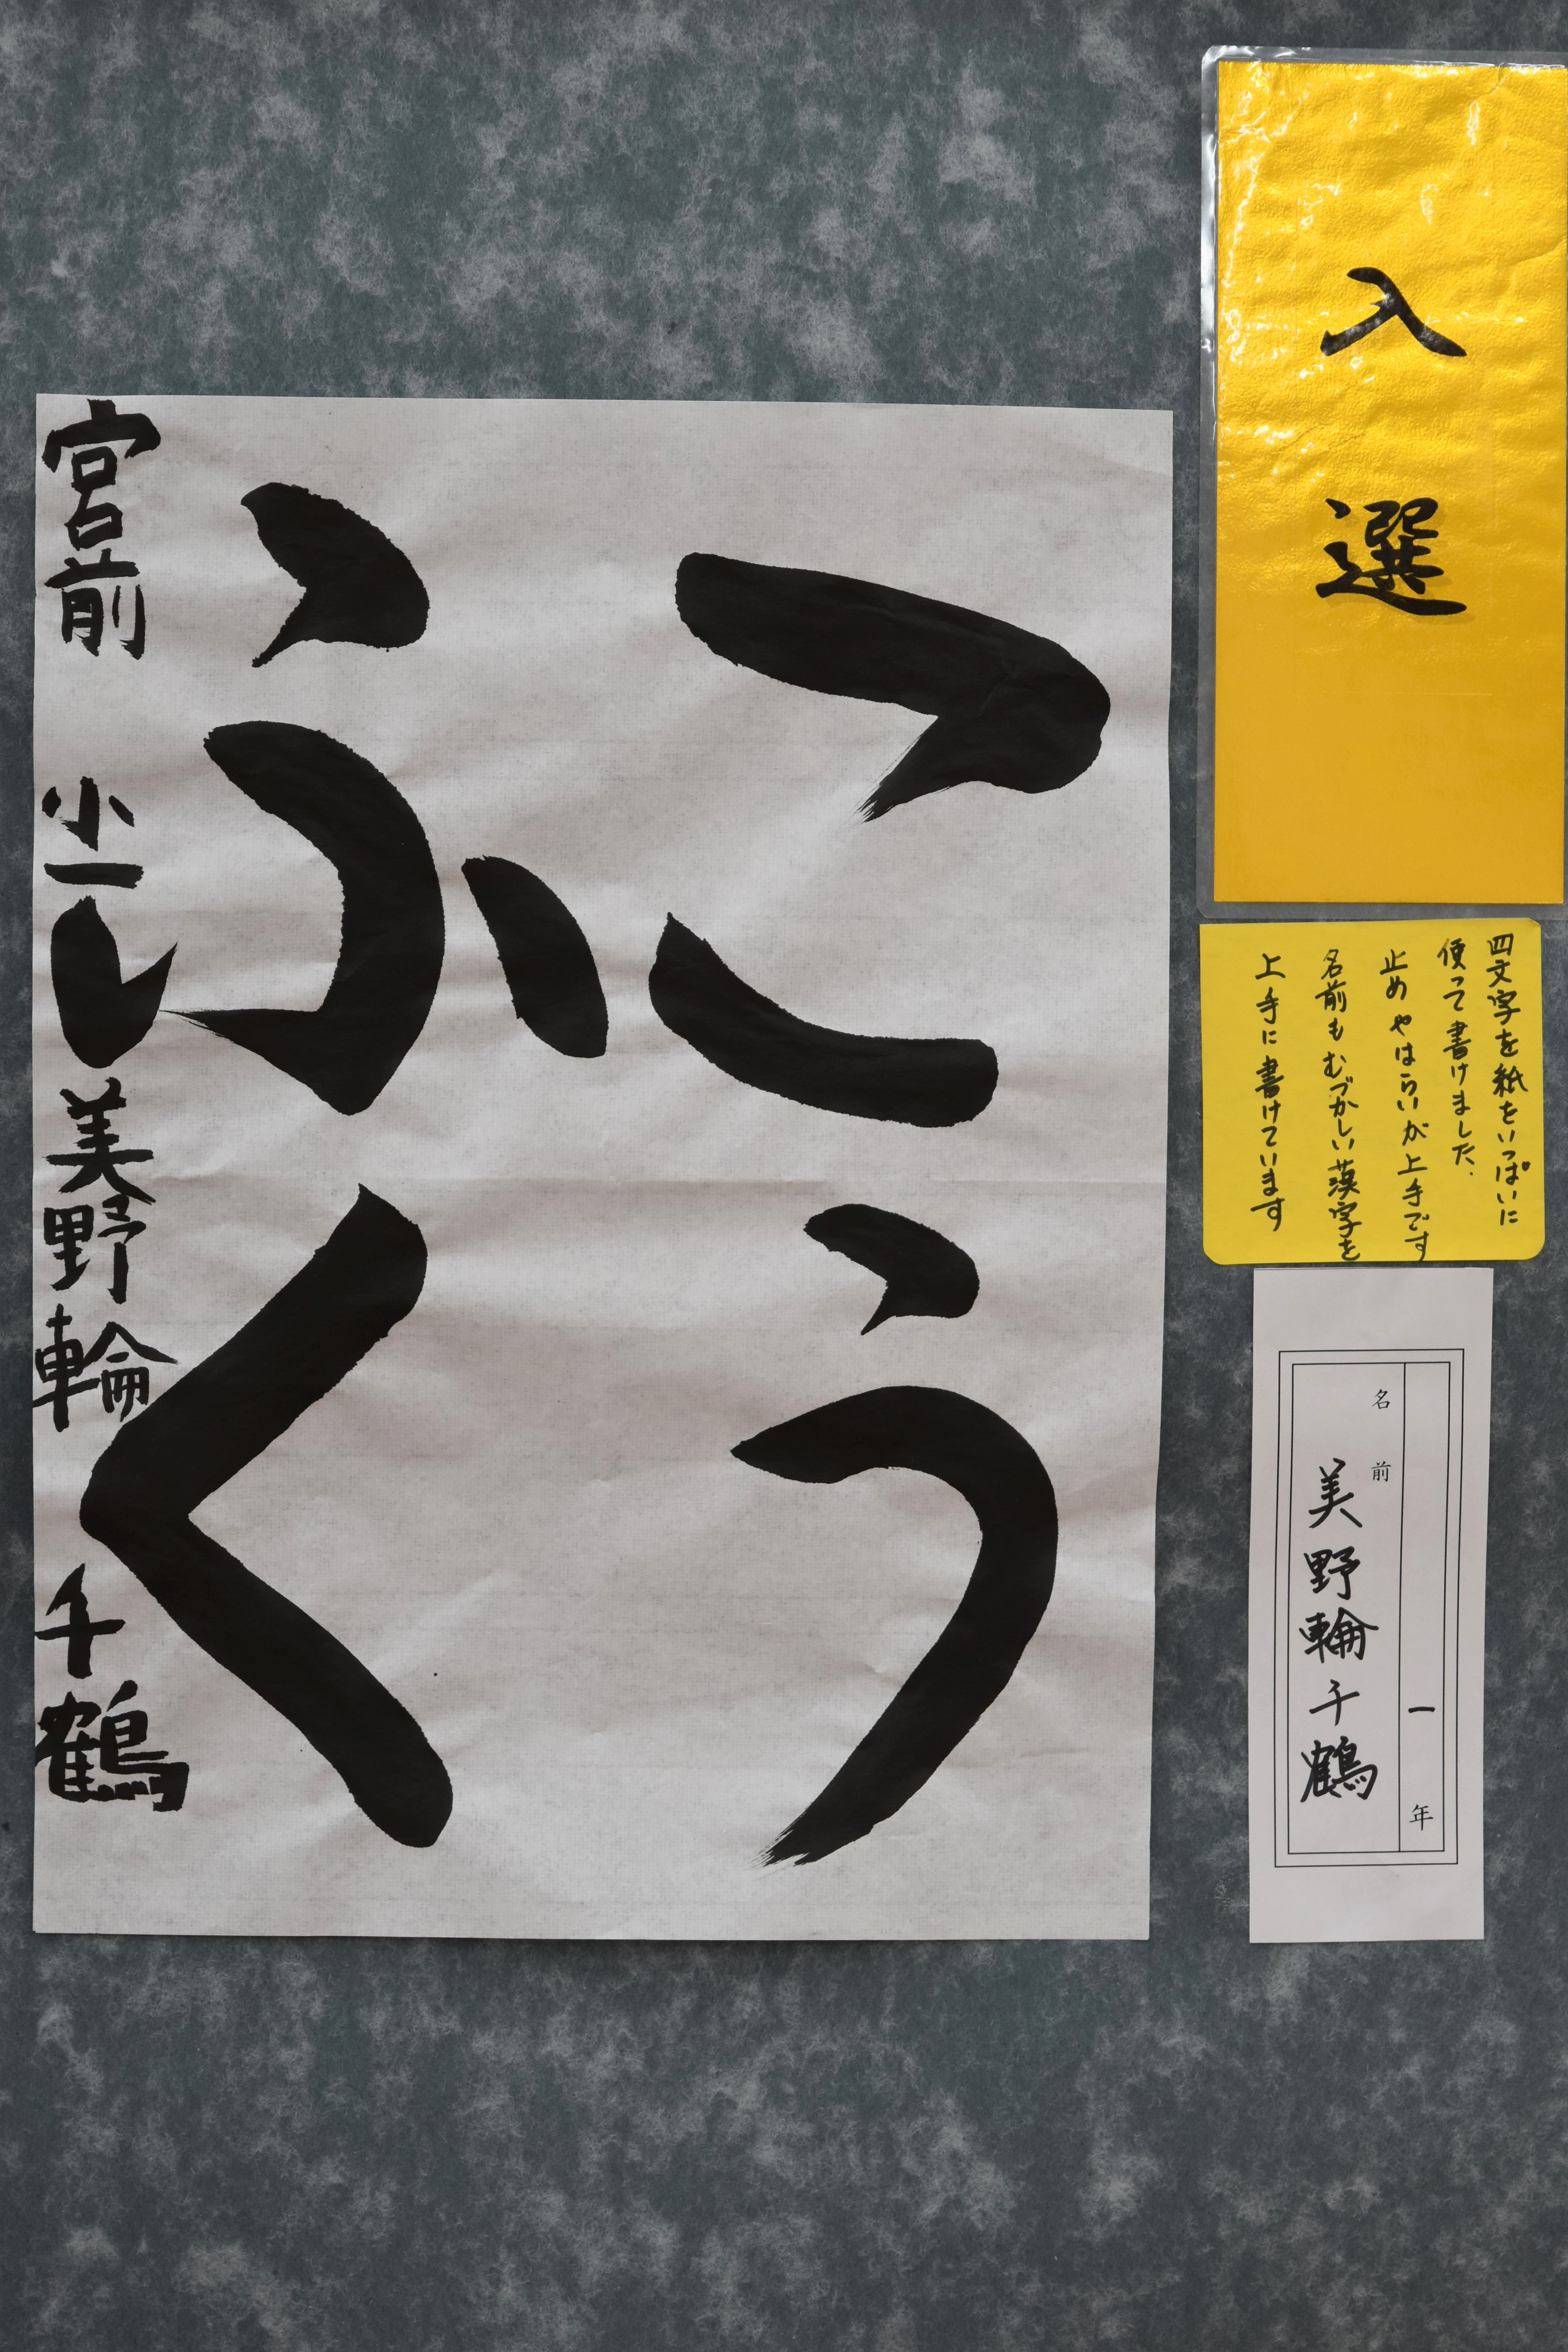 入選
四文字を紙をいっぱいに
使って書けました.
止めやはらいが上手です
名前もむづかしい漢字を
上手に書けています
一年
名前
美野輪千鶴
こう
ふく
宮前 小一 美野輪 千鶴